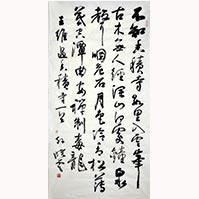 不知香積寺數里入雲峰
古木無人徑深山何處鐘泉
聲咽危石日色冷青松薄
暮空潭曲安禪制毒龍
王維過香積寺一首